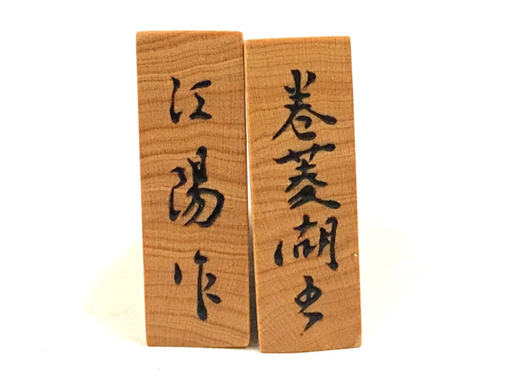 巻菱湖書
江陽作